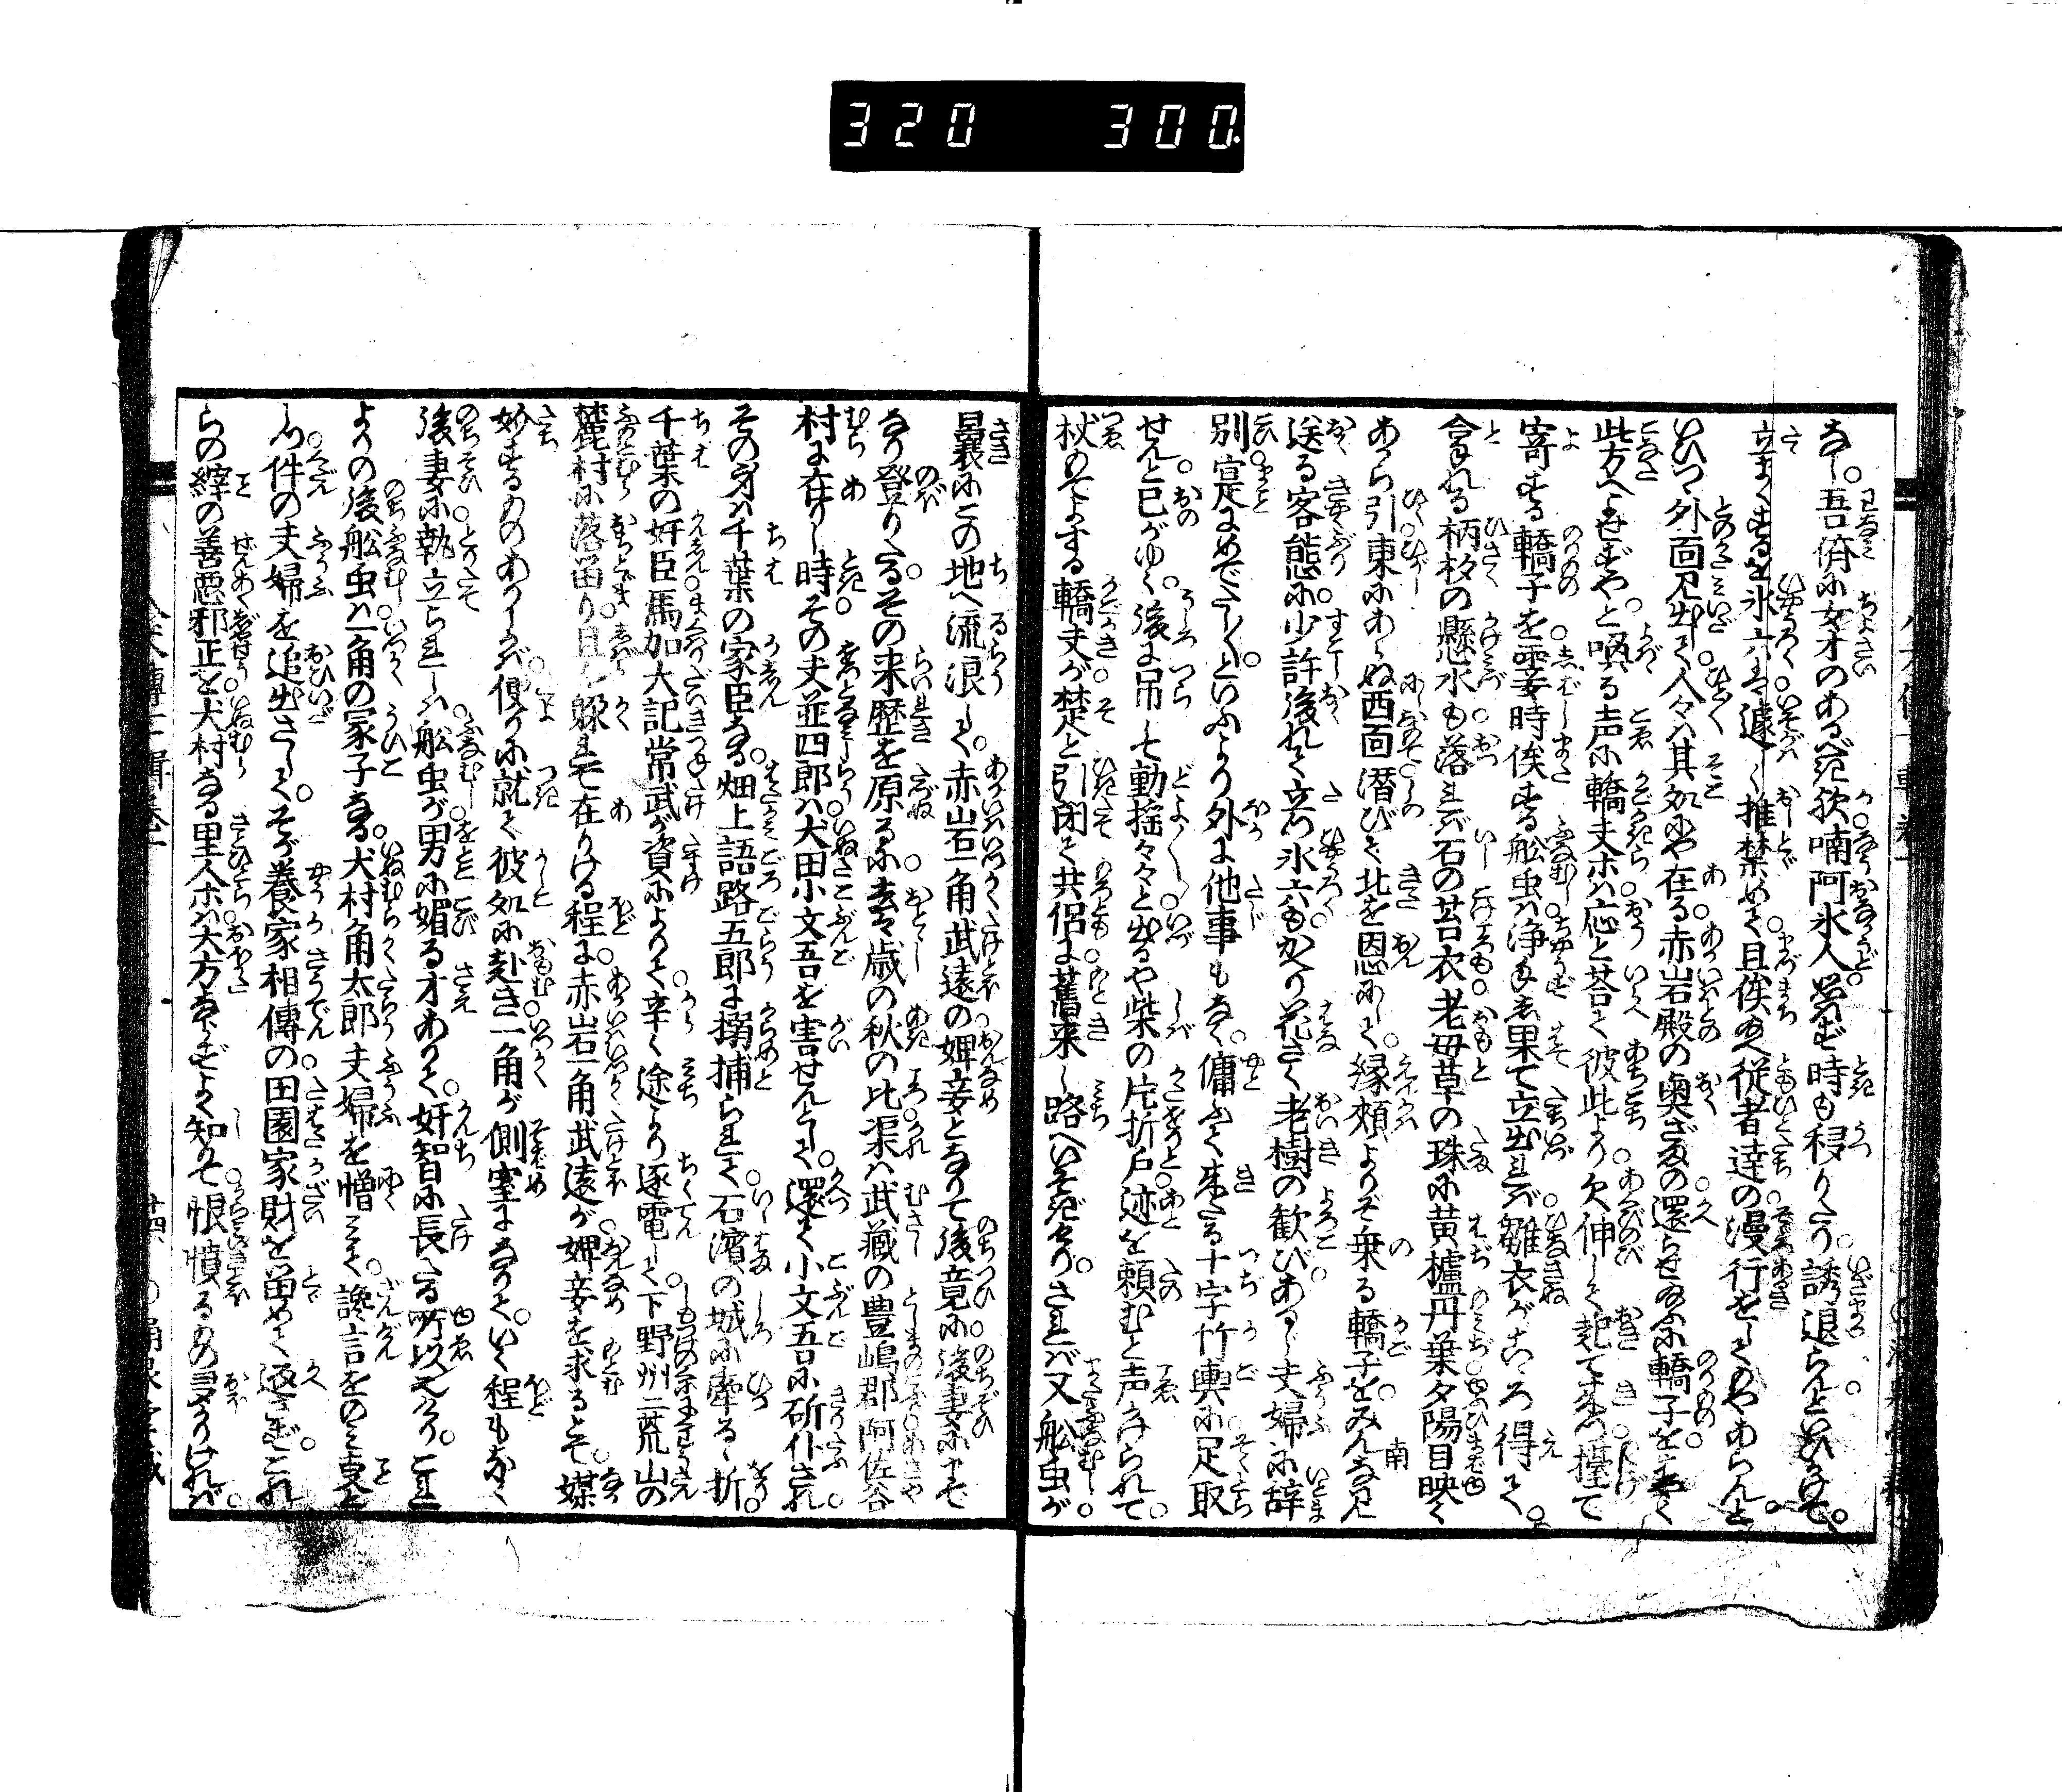 320 300
なし。吾儕に女才のあるべき欤、喃阿氷人。思はず時も移りたり。誘退らんといひかけて、
立まくするを氷六は、遽しく推禁めて、且俟給へ。従者達の漫行をしてやあらんと
いひつゝ外面見出して、人々は其処にや在る。赤岩殿の奥ざまの還らせ給ふに轎子をはやく
此方へよせずやと、喚る声に轎夫ホは、応と荅て彼此より欠伸しつゝ起て来つ、擡て
寄する轎子を、霎時俟する舩虫は、浄手し果て立出れば、雛衣がこゝろ得て、
拿れる柄杓の懸水も、落れば石の苔衣、老母草の珠に黄櫨丹葉、夕陽目映く
あから引、東にあらぬ西面、潜びて北を恩にして、縁頬よりぞ乗る轎子を、みんなみ
送る客態に、少許後れて立つ氷六も、かへり花さく老樹の歓び、あるじ夫婦に辞
別、寔にめでたし〳〵といふより外に他事もなく、傭ふて来たる十字竹輿に足取
せんと已がゆく、後に吊して動揺々々と出るや柴の片折戸、迹を頼むと声かけられて、
杖のてよする轎夫が、楚と引閉て共侶に、舊来し路へいそぎけり。されば又舩虫が、
曩襄にこの地へ流浪して、赤岩一角武遠の婢妾となりて、後竟に後妻にさへ
なり登りたる、その来歴を原るに、去る歳の秋の比、渠は武藏の豊嶋郡阿佐谷
村に在りし時、その夫並四郎は、犬田小文吾を害せんとして、還て小文吾に斫仆され、
その身は千葉の家臣なる、畑上語路五郎に搦捕られて、石濱の城に牽るゝ折、
千葉の奸臣馬加大記常武が資によりて、辛く途より逐電して、下野州二荒山の
麓村に落畄り、且く躱れて在りける程に、赤岩一角武遠が、婢妾を求るとて、媒
妁するものありしかば、便りに就て彼処に赴き、一角が側室になりて、いく程もなく
後妻に執立られしは、舩虫が男に媚る才ありて、奸智に長たる所以也けり。これ
よりの後舩虫は、一角の冢子なる、犬村角太郎夫婦を憎みて、讒言をのみ事と
しつ、件の夫婦を追出さして、そが養家相傳の田園家財を畄めて返さず。これ
らの縡の善悪邪正を、犬村なる里人ホは、大方ならずよく知りて、恨憤るもの多かりければ、